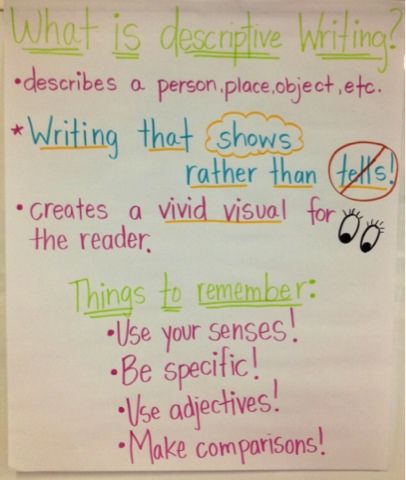 What is descriptive Writing?
•describes a person, place, object, etc.
*Writing that shows
rather than tells!
•creates a vivid visual for
the reader.
Things to remember:
•Use your senses!
•Be specific!
•Use adjectives!
•Make comparisons!